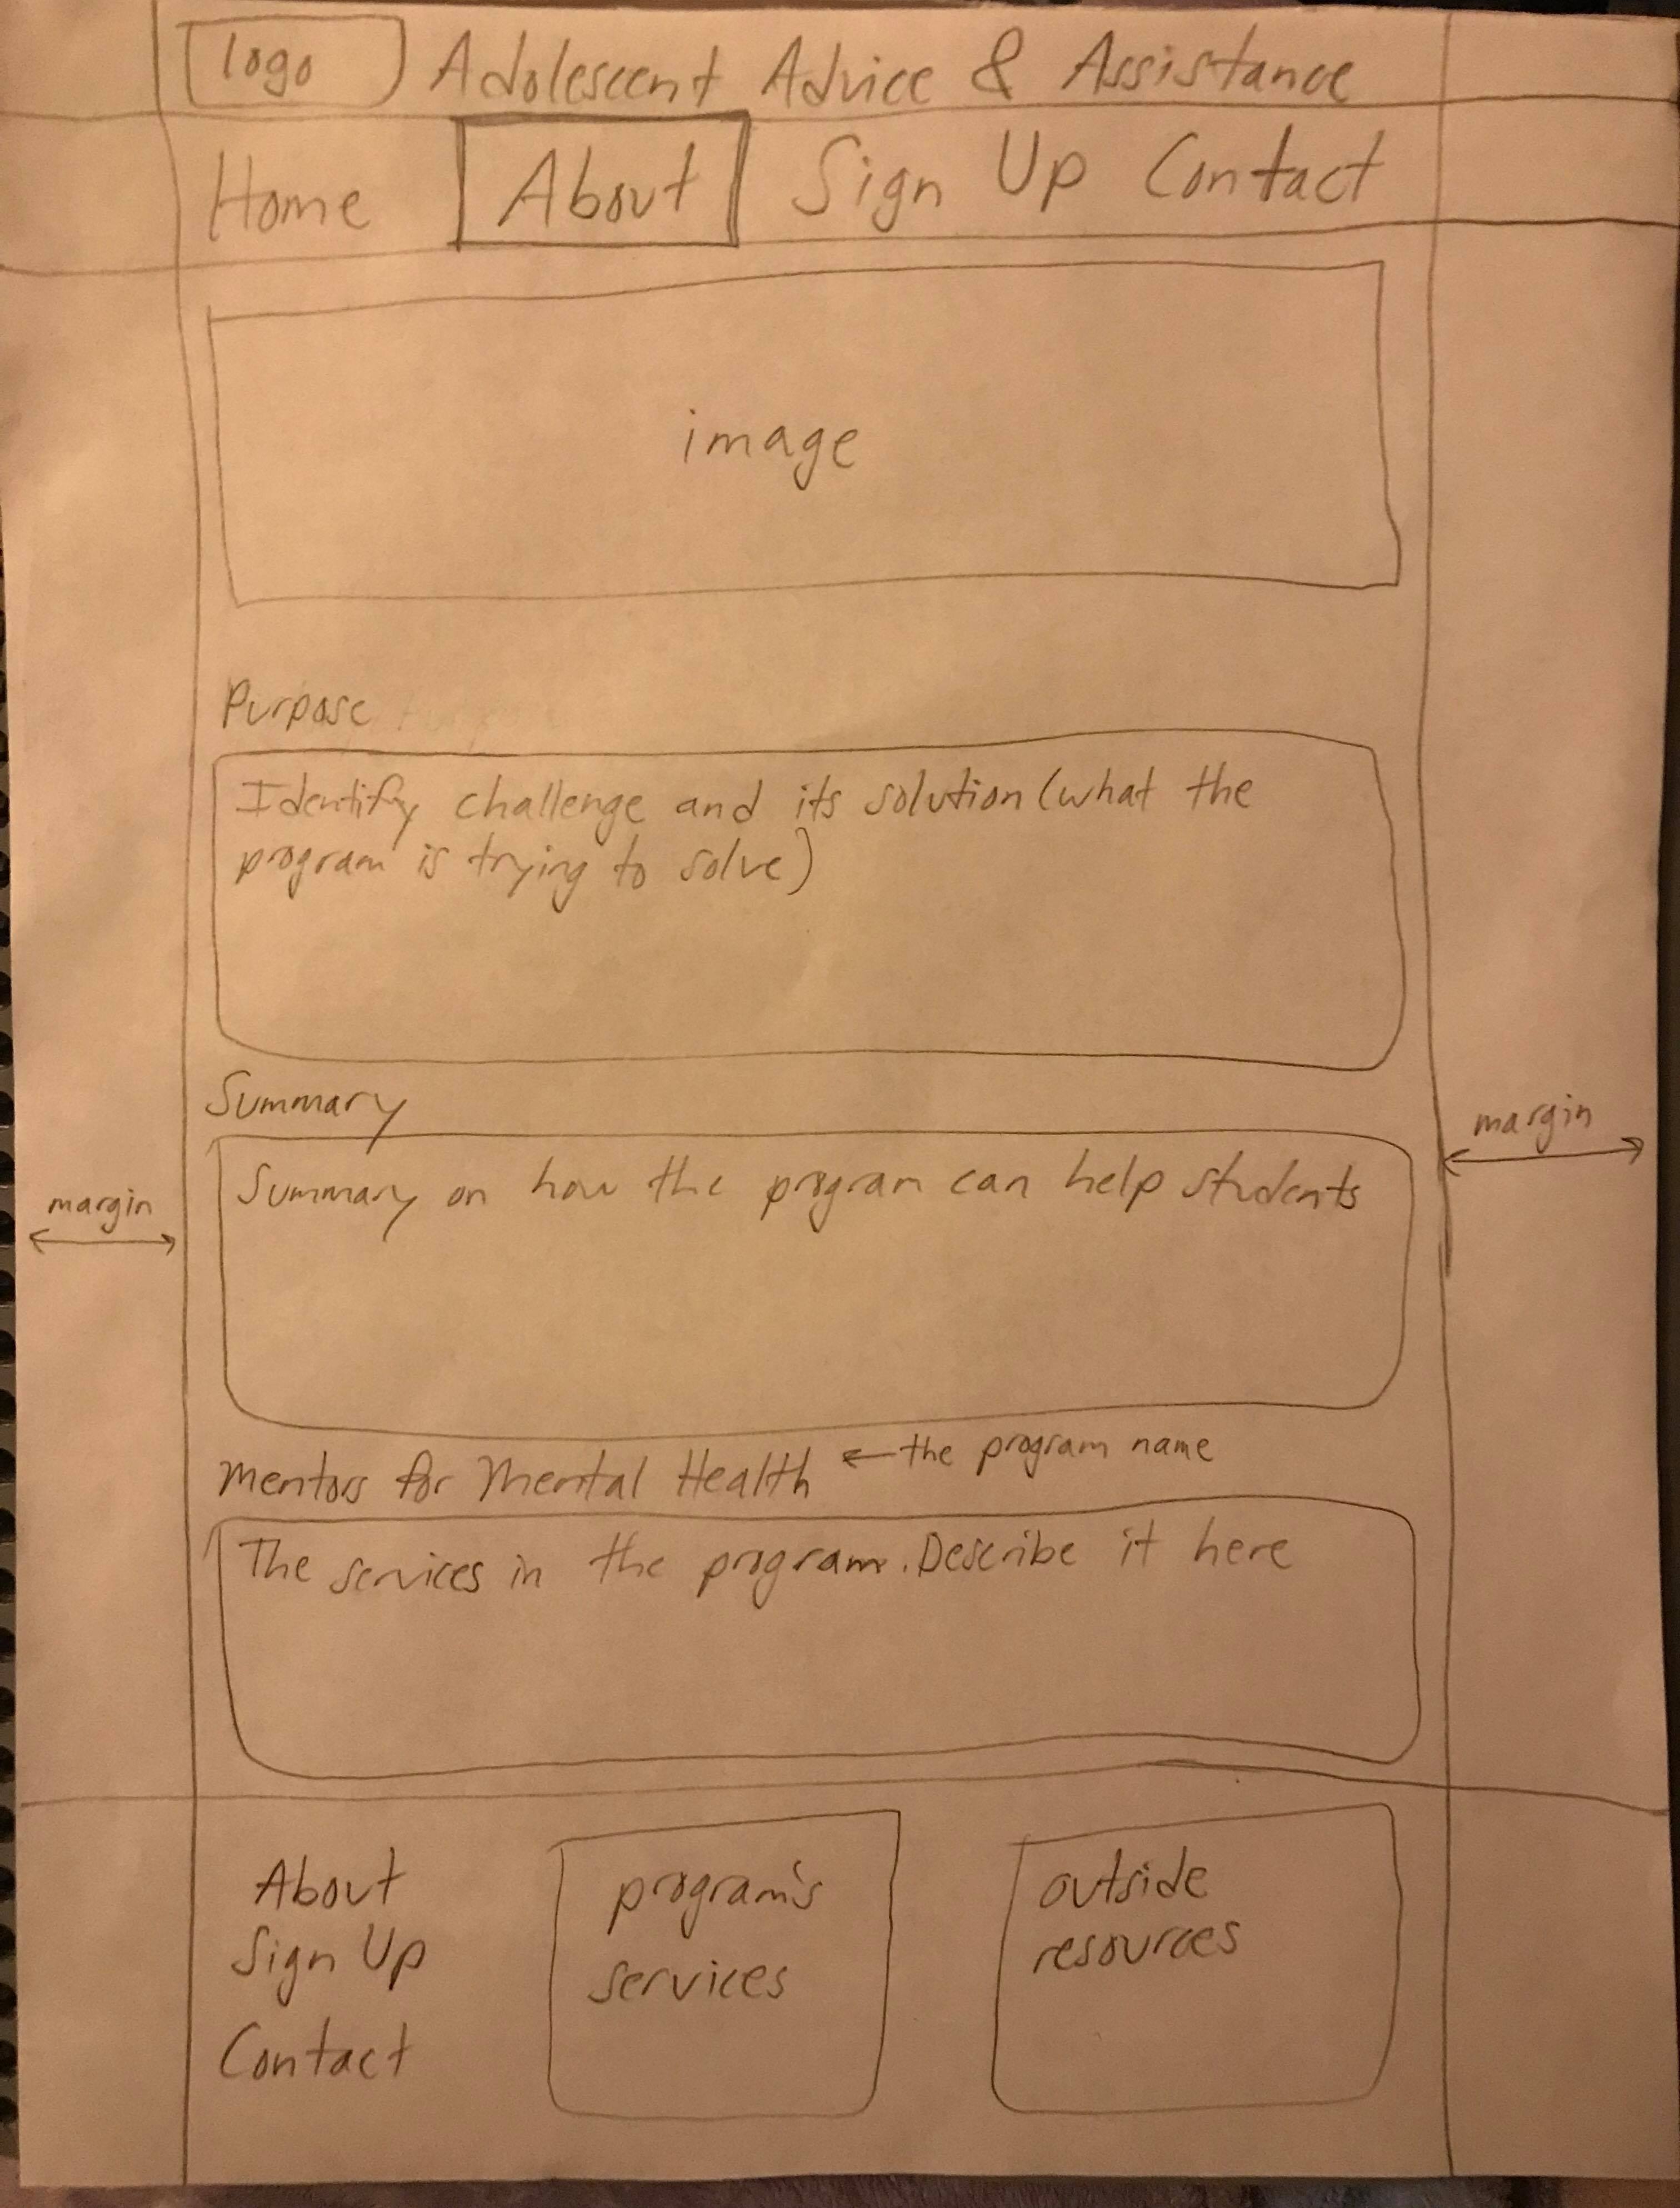 logo Adolescent Advice & Assistance
Home About Sign Up Contact
image
Purpose
Identify challenge and its solution (what the
program is trying to solve)
Summary
margin
Summary on how the program can help students
margin
Mentors for Mental Health ← the program name
The services in the program. Describe it here
About
Sign Up
Contact
program's
services
outside
resources